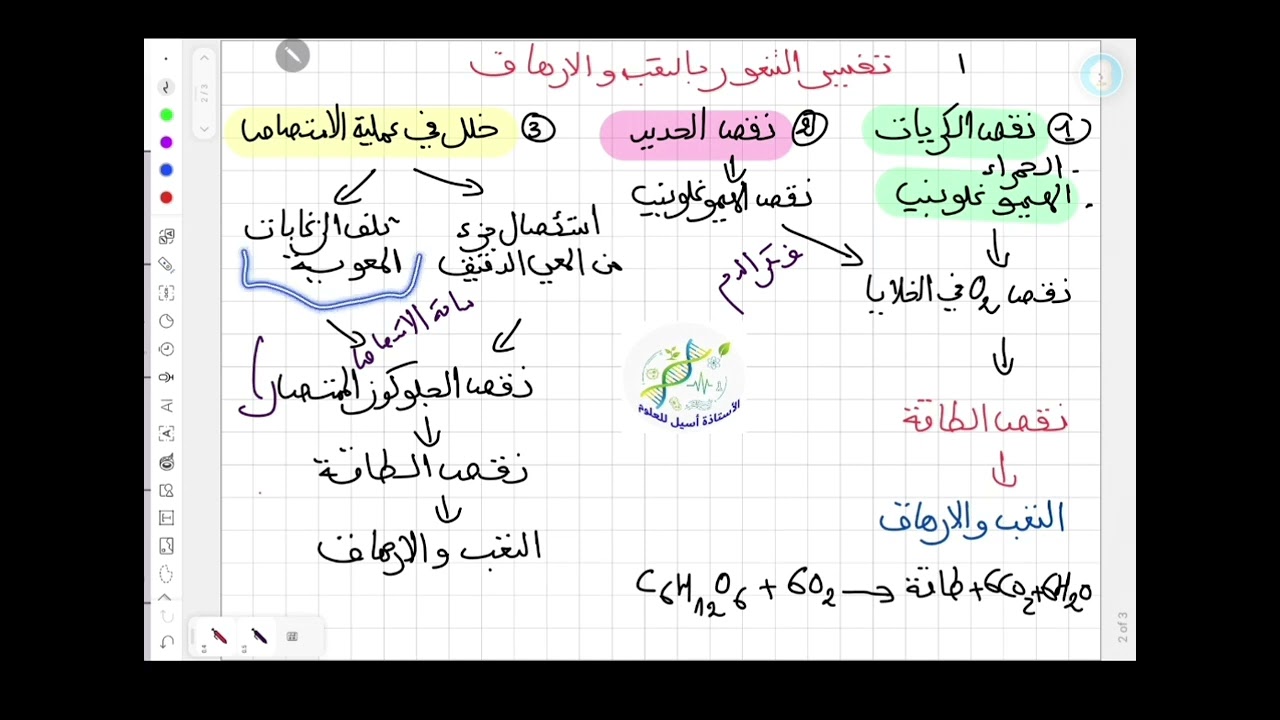 1 تفسير الشعور بالتعب والارهاق
① نقص الكريات
- الحمراء
. الهيموغلوبين
↓
نقص O2 في الخلايا
↓
نقص الطاقة
↓
التعب والارهاق
② نقص الحديد
↓
نقص الهيموغلوبين
فقر الدم
③ خلل في عملية الامتصاص
استئصال جزء
من المعي الدقيق
تلف الزغابات
المعوية
مساحة الامتصاص
نقص الجلوكوز الممتص
↓
نقص الطاقة
↓
التعب والارهاق
C6H12O6 + 6O2 → طاقة + 6CO2 + 6H2O
الأستاذة أسيل للعلوم
2/3
2 of 3